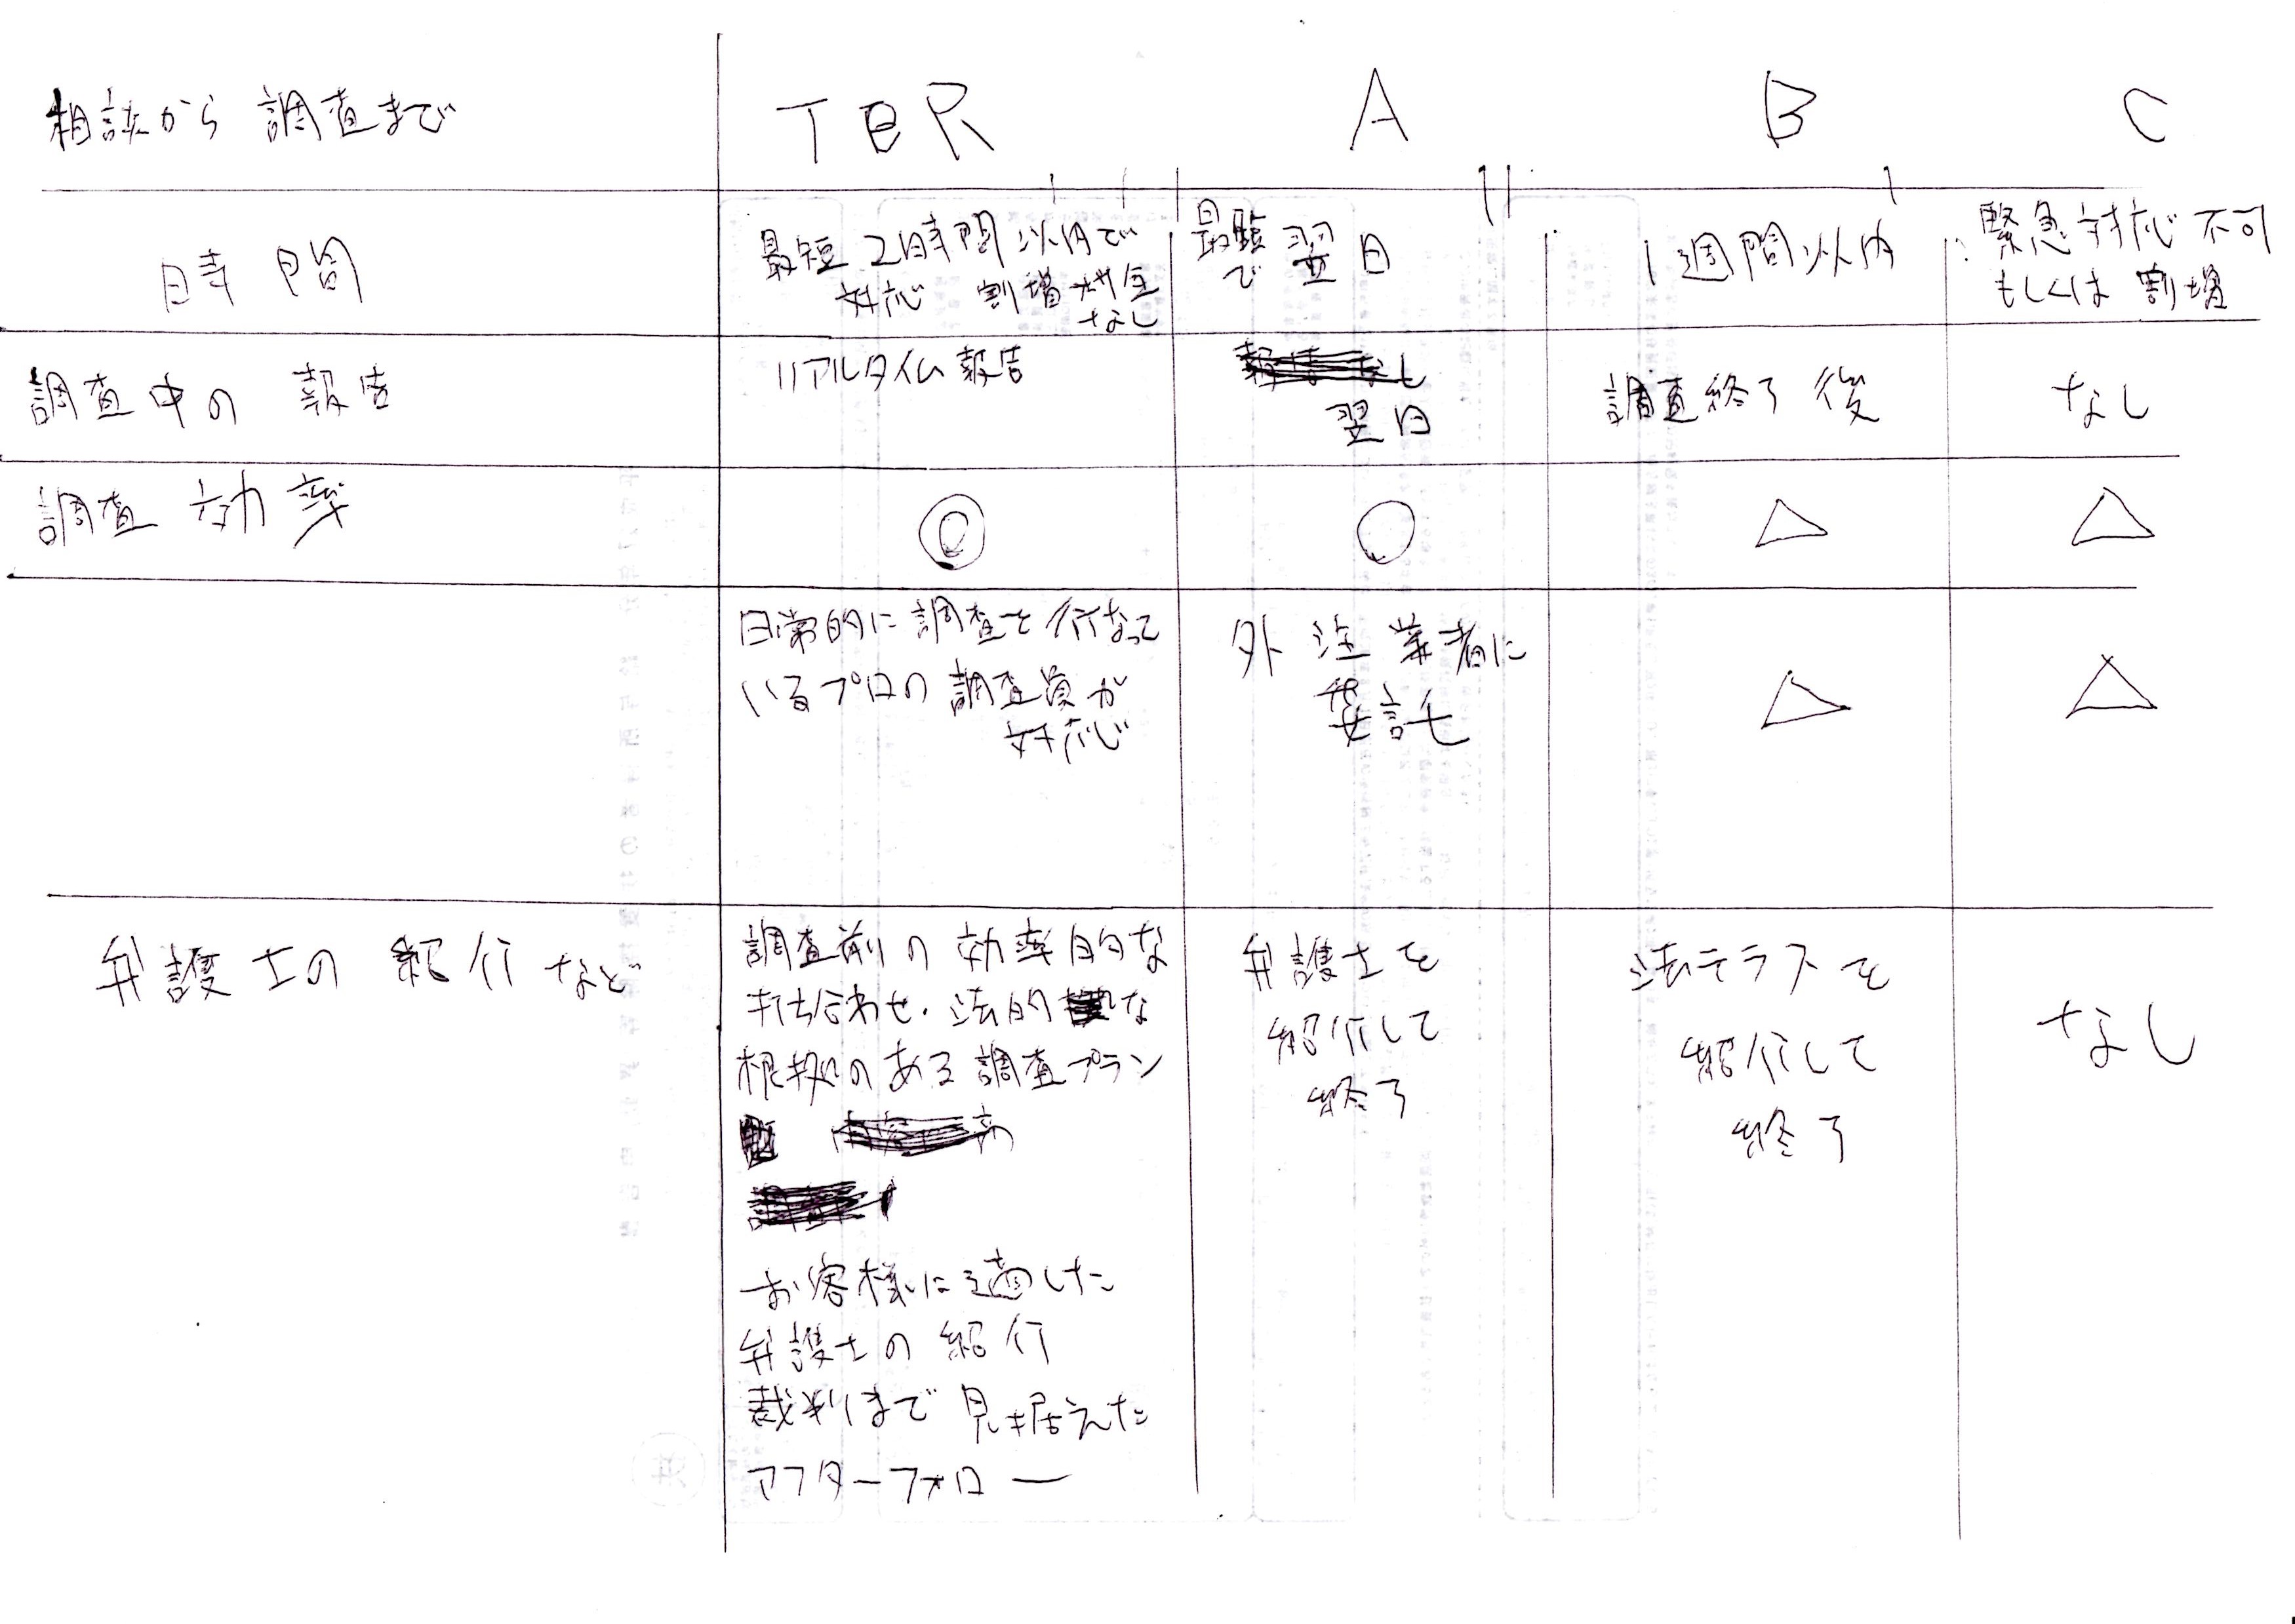 相談から 調査まで
TER A B C
時間
最短 2時間以内で
対応 割増料金
なし
最短
で 翌日
1週間以内
緊急対応不可
もしくは 割増
調査中の 報告
リアルタイム報告
翌日
調査終了後
なし
調査 効率
◎ ○ △ △
日常的に調査を行なって
いるプロの調査員が
対応
外注業者に
委託
△ △
弁護士の紹介など
調査前の効率的な
打ち合わせ・法的な
根拠のある調査プラン
お客様に適した
弁護士の紹介
裁判まで見据えた
アフターフォロー
弁護士を
紹介して
終了
法テラスを
紹介して
終了
なし